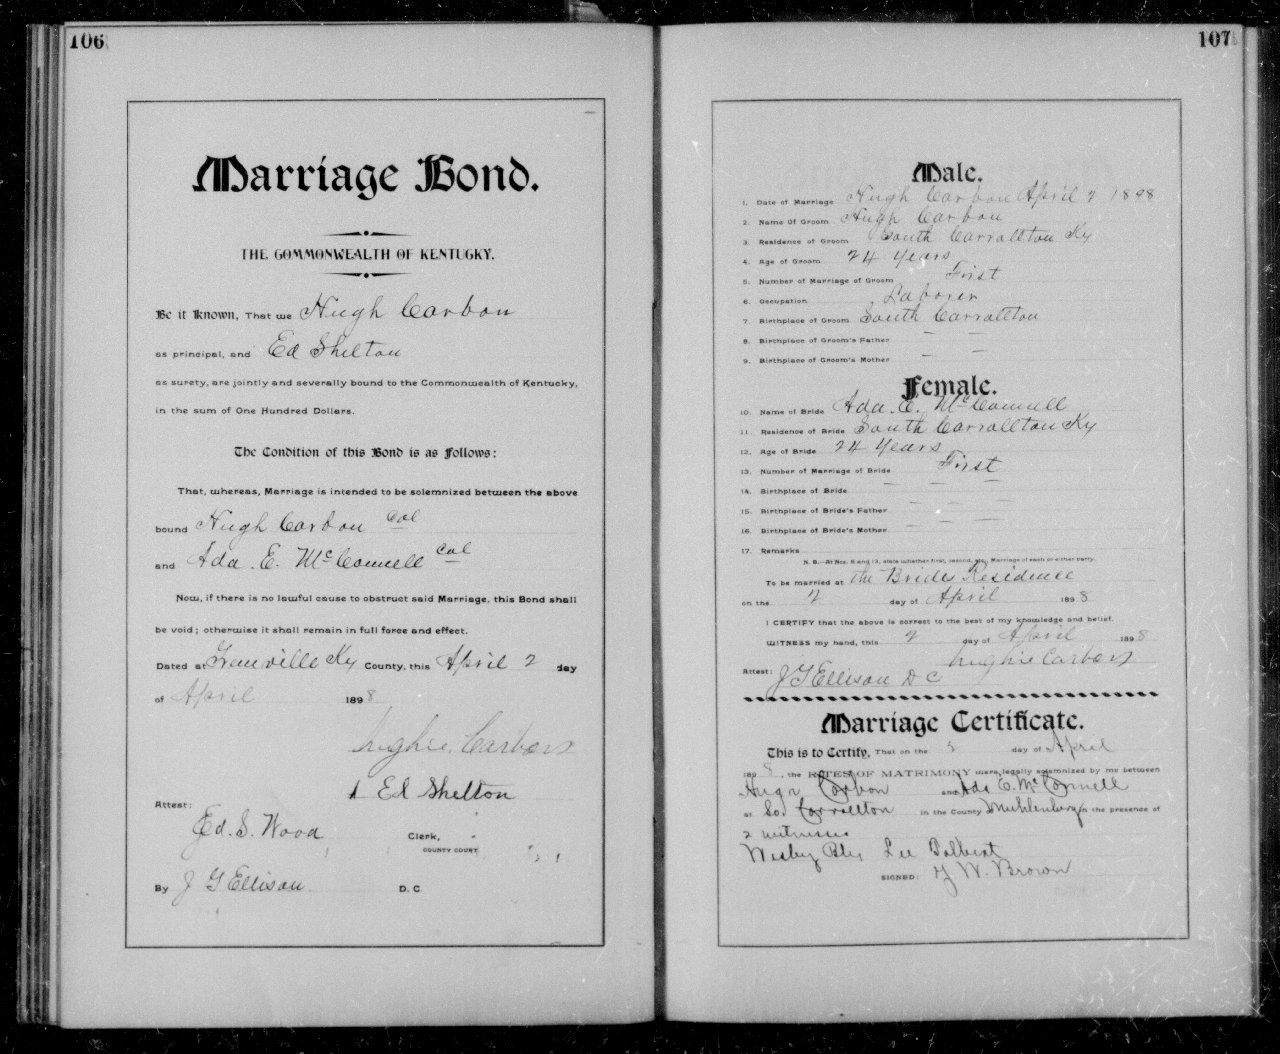 106
Marriage Bond.
THE COMMONWEALTH OF KENTUCKY.
Be it Known, That we Hugh Carbon
as principal, and Ed Shelton
as surety, are jointly and severally bound to the Commonwealth of Kentucky,
in the sum of One Hundred Dollars.
The Condition of this Bond is as Follows:
That, whereas, Marriage is intended to be solemnized between the above
bound Hugh Carbon Col
and Ada. E. McConnell Col
Now, if there is no lawful cause to obstruct said Marriage, this Bond shall
be void; otherwise it shall remain in full force and effect.
Dated at Greenville Ky County, this April 2 day
of April 1898
hughie Carbon
Ed Shelton
Attest:
Ed. S. Wood Clerk,
COUNTY COURT
By J G Ellison D. C.
107
Male.
1. Date of Marriage Hugh Carbon April 2 1898
2. Name Of Groom Hugh Carbon
3. Residence of Groom South Carrollton Ky
4. Age of Groom 24 Years
5. Number of Marriage of Groom First
6. Occupation Laborer
7. Birthplace of Groom South Carrollton
8. Birthplace of Groom's Father
9. Birthplace of Groom's Mother
Female.
10. Name of Bride Ada. E. McConnell
11. Residence of Bride South Carrollton Ky
12. Age of Bride 24 Years
13. Number of Marriage of Bride First
14. Birthplace of Bride
15. Birthplace of Bride's Father
16. Birthplace of Bride's Mother
17. Remarks
N. B.—At Nos. 5 and 13, state whether first, second, etc., Marriage of each or either party.
To be married at the Brides Residence
on the 2 day of April 1898
I CERTIFY that the above is correct to the best of my knowledge and belief.
WITNESS my hand, this 2 day of April 1898
hughie Carbon
Attest: J G Ellison D C
Marriage Certificate.
This is to Certify, That on the 3 day of April
1898, the RITES OF MATRIMONY were legally solemnized by me between
Hugh Carbon and Ada E. McConnell
at So. Carrollton in the County Muhlenberg in the presence of
2 witnesses
Wesley Lee Dolbert
SIGNED: W. Brown